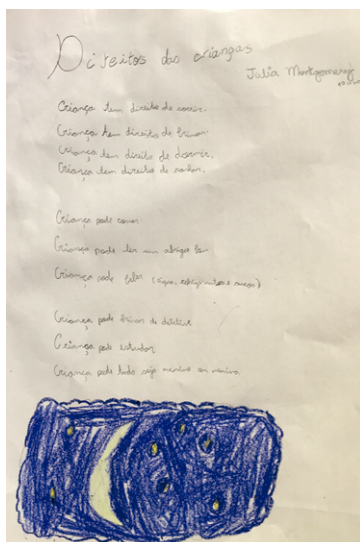 Direitos das crianças
Julia Montgomery
Criança tem direito de correr.
Criança tem direitos de brincar.
Criança tem direito de dormir.
Criança tem direitos de sonhar.
Criança pode comer
Criança pode ter um abrigo
Criança pode
Criança pode brincar de detetive
Criança pode estudar
Criança pode tudo seja menino ou menina.